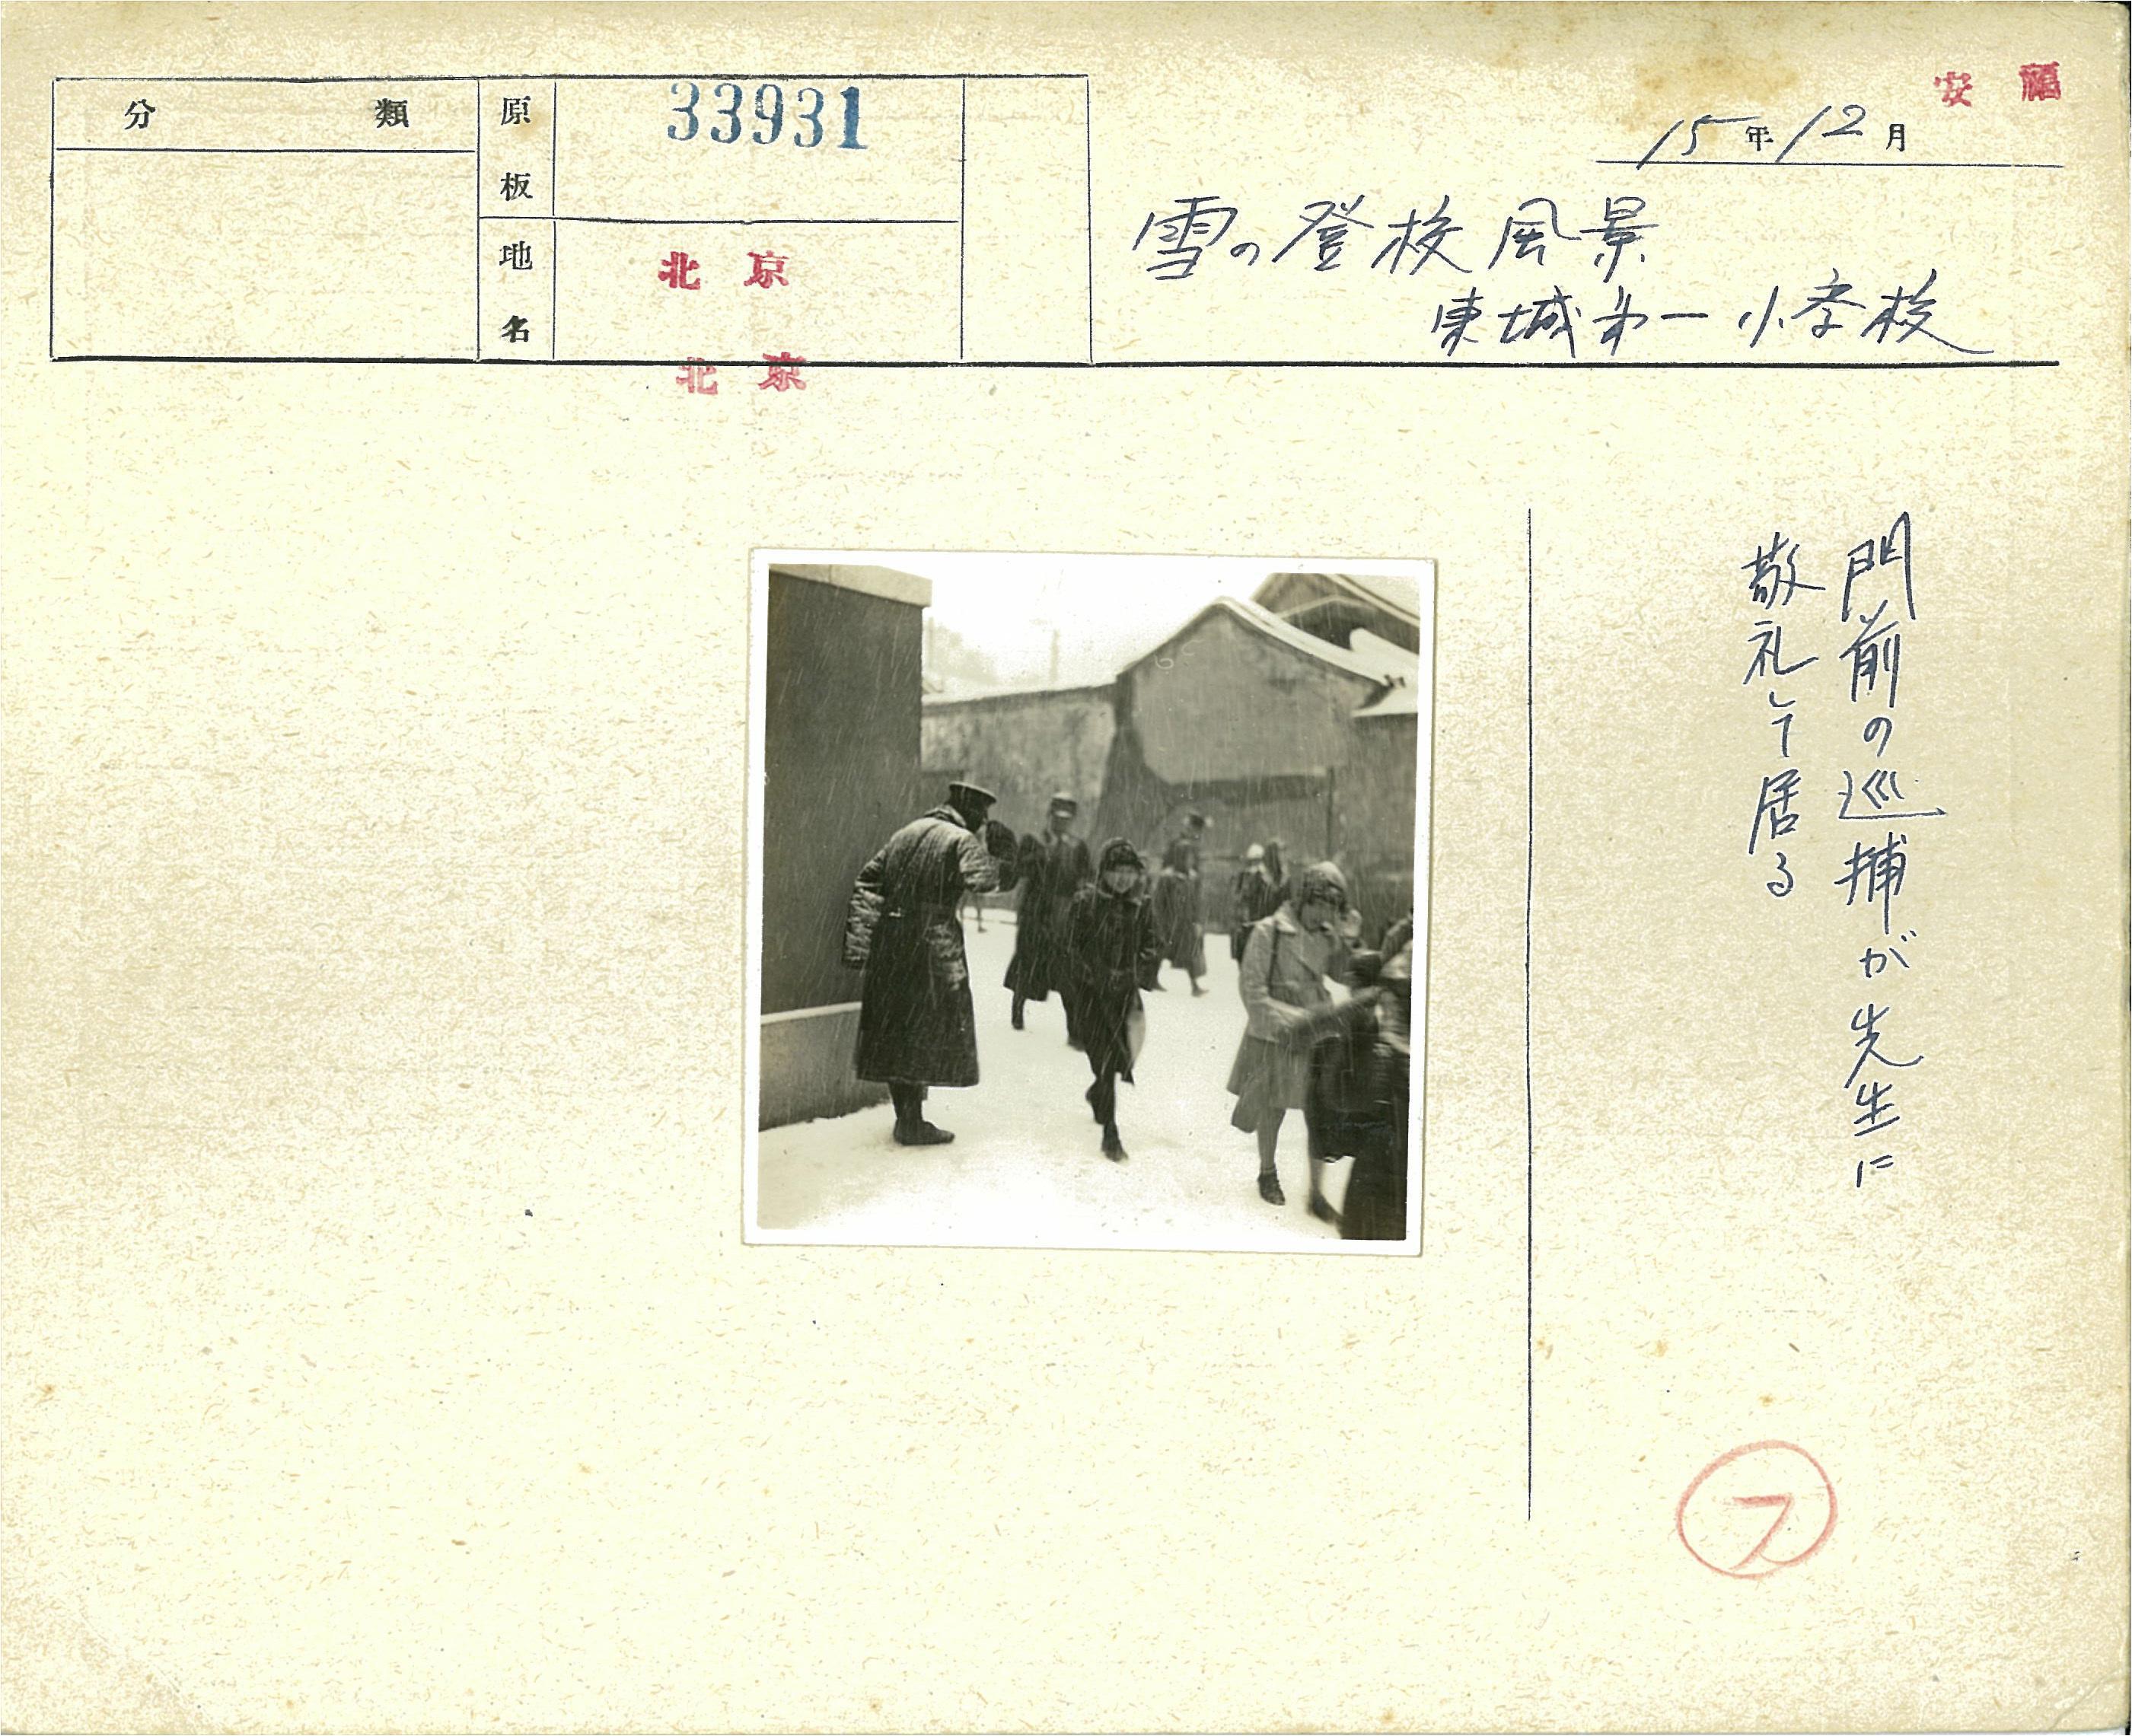 安 福
15年12月
分 類
原板
33931
地名
北 京
北 京
雪の登校風景
東城第一小学校
門前の巡捕が先生に
敬礼して居る
ス